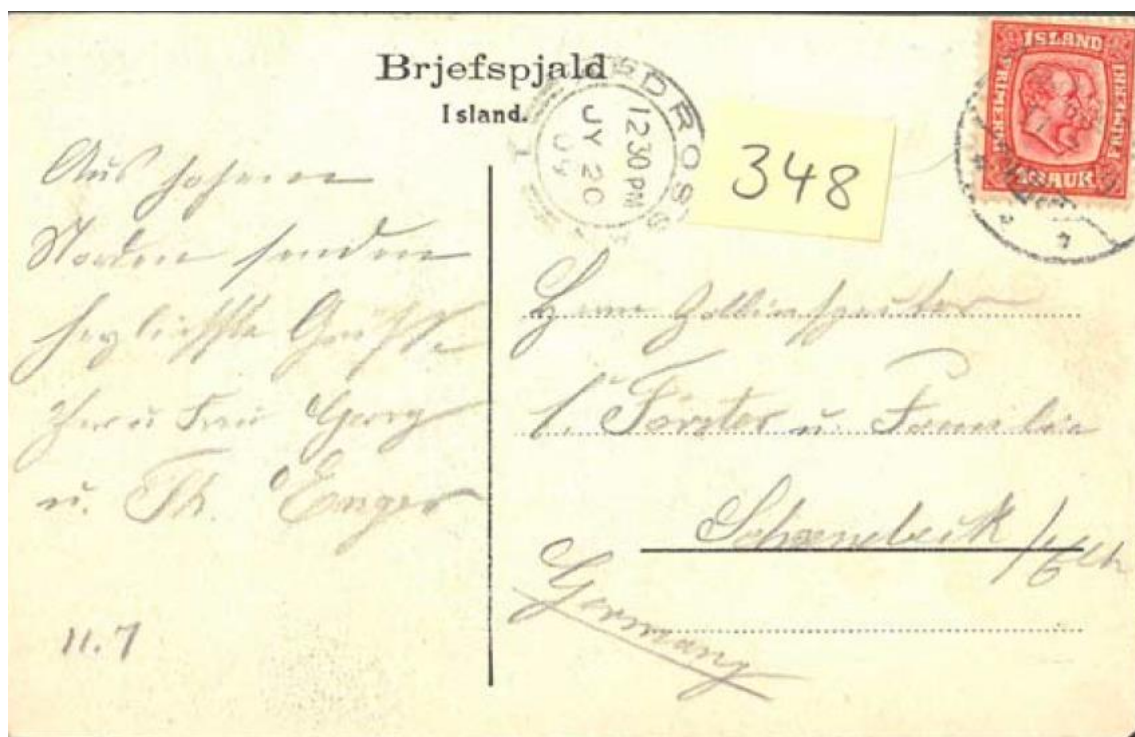 Brjefspjald
Island.
ARDROSS
12 30 PM
JY 20
09
348
ISLAND
FRIMERKI
FRIMERKI
AUR
Aus hohem
Norden senden
herzlichste Grüsse
Ihre u. Frau Georg
u. Th. Enger
11.7
Herrn Zollinspector
L. Förster u. Familie
Schoenebeck /Elbe
Germany